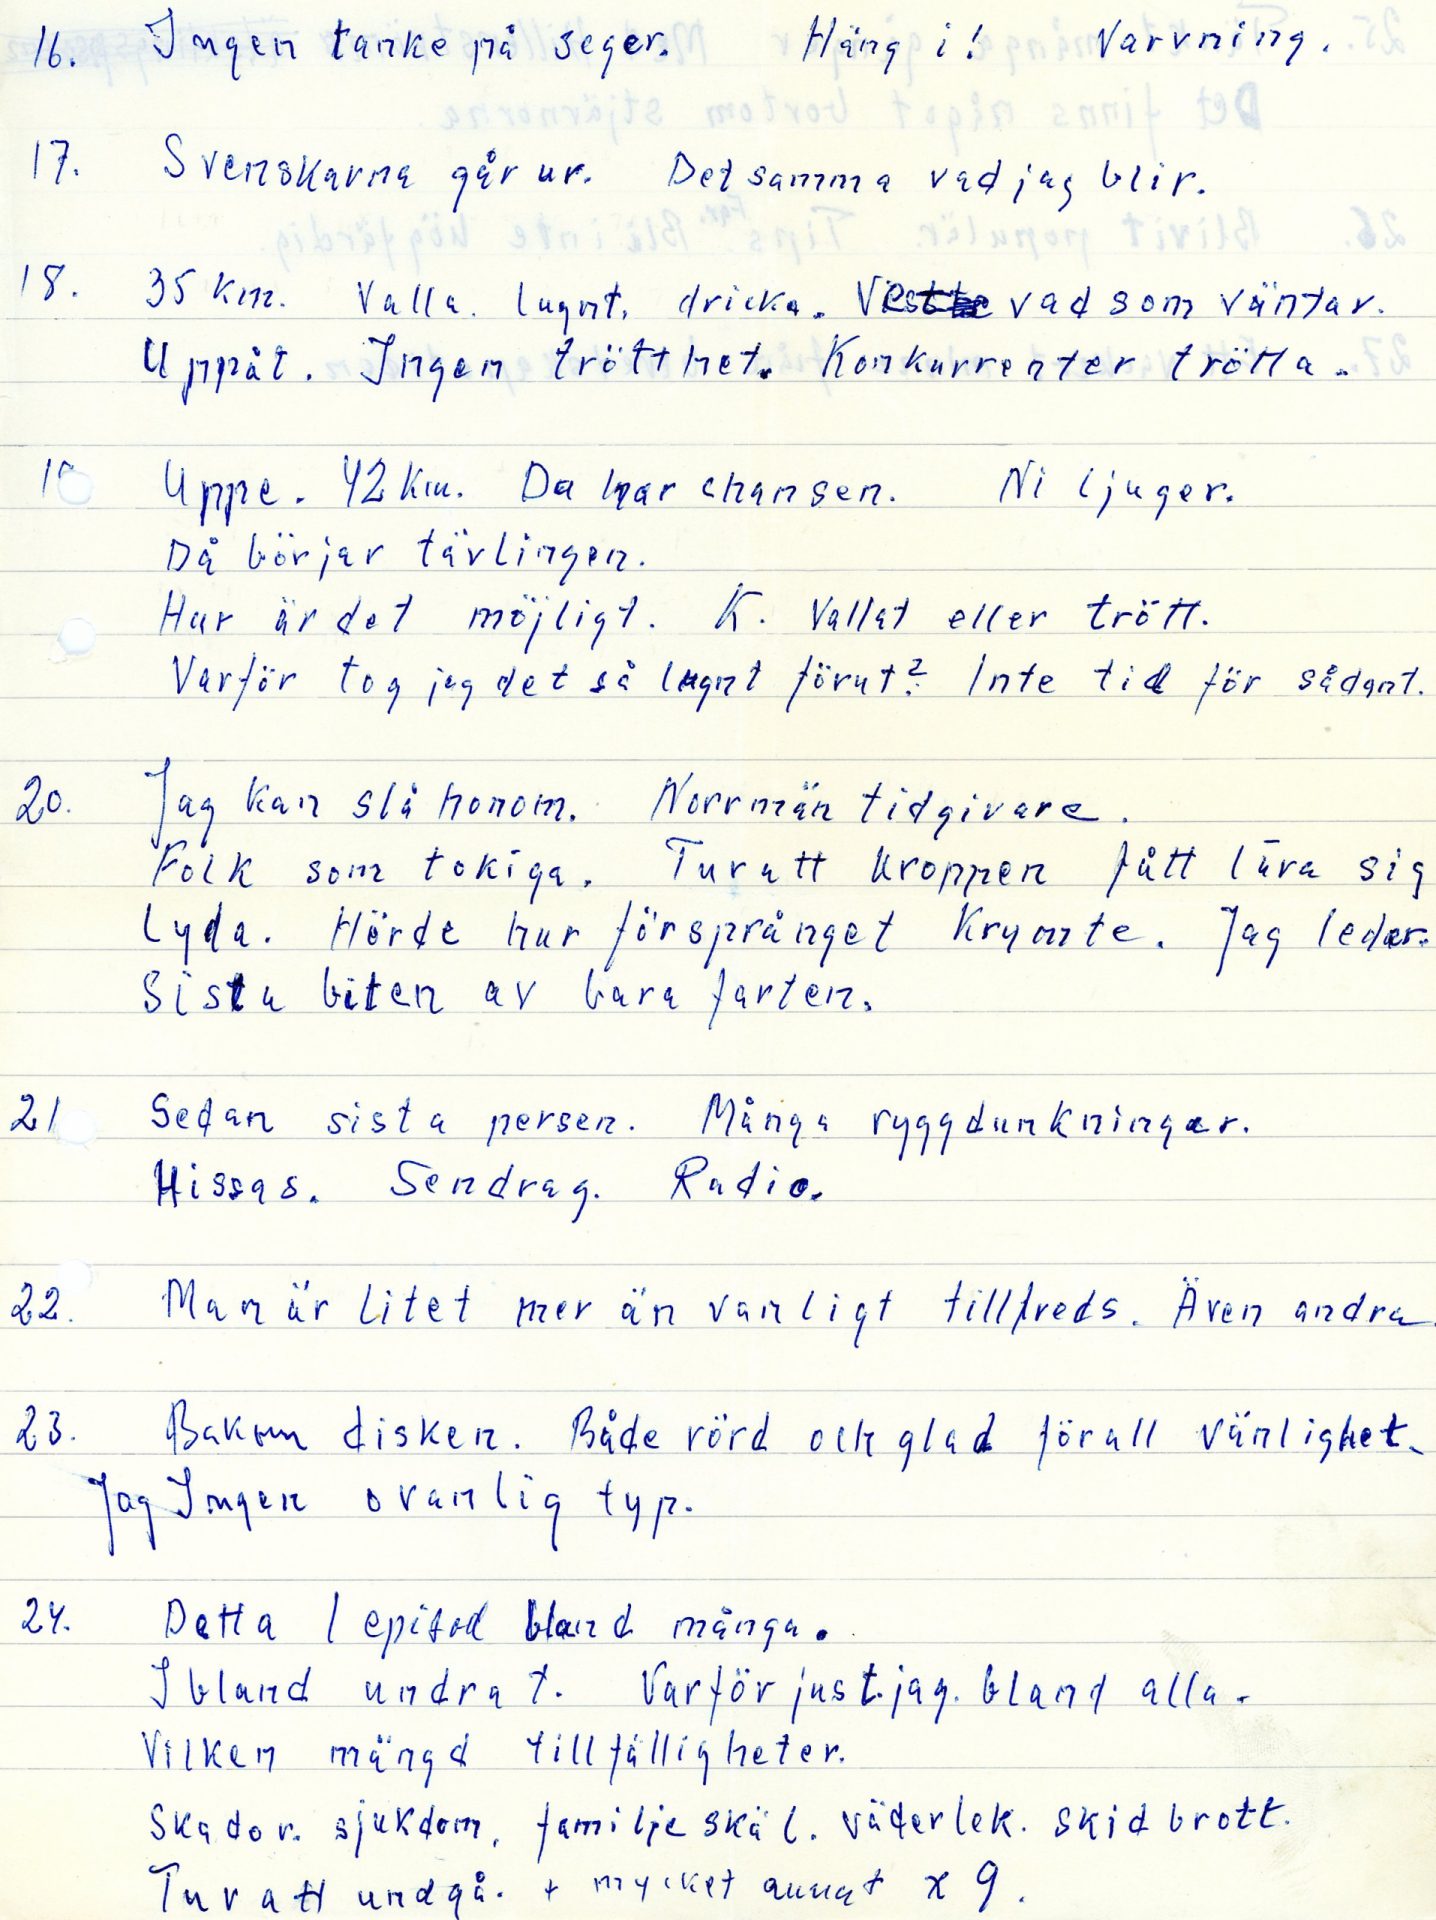 16. Ingen tanke på seger. Häng i! Varvning.
17. Svenskarna går ur. Det samma vad jag blir.
18. 35 km. Valla. lugnt. dricka. Veste vad som väntar.
Uppåt. Ingen trötthet. Konkurrenter trötta.
19 Uppe. 42 km. Du har chansen. Ni ljuger.
Då börjar tävlingen.
Hur är det möjligt. K. Vallat eller trött.
Varför tog jag det så lugnt förut? Inte tid för sådant.
20. Jag kan slå honom. Norrmän tidgivare.
Folk som tokiga. Tur att kroppen fått lära sig
Lyda. Hörde hur försprånget krymte. Jag leder.
Sista biten av bara farten.
21 Sedan sista persen. Många ryggdunkningar.
Hissas. Sendrag. Radio.
22. Man är litet mer än vanligt tillfreds. Även andra.
23. Bakom disken. Både rörd och glad för all vänlighet.
Jag Ingen ovanlig typ.
24. Detta 1 episod bland många.
Ibland undrat. Varför just jag. bland alla.
Vilken mängd tillfälligheter.
Skador. sjukdom, familjeskäl. väderlek. skidbrott.
Tur att undgå. + mycket annat x 9.